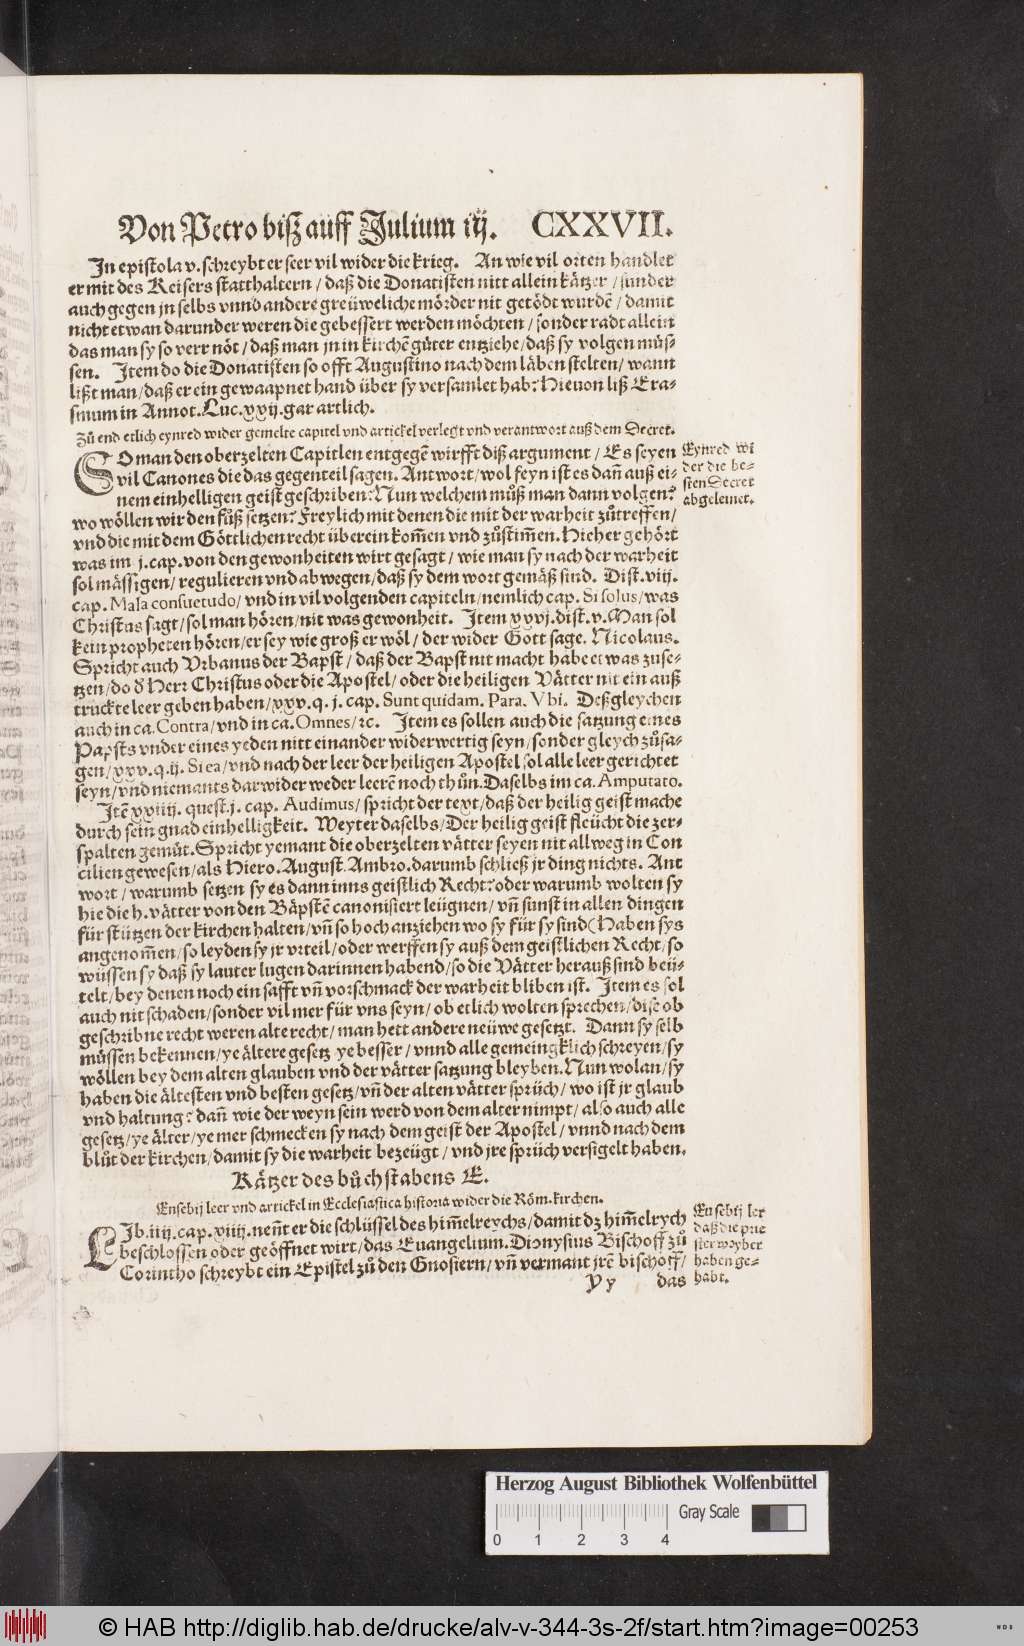 Von Petro biß auff Julium iij. CXXVII.
In epistola v. schreybt er seer vil wider die krieg. An wie vil orten handlet
er mit des Keisers statthaltern / daß die Donatisten nitt allein kätzer / sunder
auch gegen jn selbs vnnd andere greüweliche mörder nit getödt wurdẽ / damit
nicht etwan darunder weren die gebessert werden möchten / sonder radt allein
das man sy so verr nöt / daß man jn in kirchẽ güter entziehe / daß sy volgen müs-
sen. Item do die Donatisten so offt Augustino nach dem läben stelten / wann
lißt man / daß er ein gewaapnet hand über sy versamlet hab? Hieuon liß Era-
smum in Annot. Luc. xxij. gar artlich.
Zů end etlich eynred wider gemelte capitel vnd artickel verlegt vnd verantwort auß dem Decret.
SO man den oberzelten Capitlen entgegẽ wirfft diß argument / Es seyen
vil Canones die das gegenteil sagen. Antwort / wol feyn ist es dañ auß ei-
nem einhelligen geist geschriben? Nun welchem můß man dann volgen?
wo wöllen wir den fůß setzen? Freylich mit denen die mit der warheit zůtreffen /
vnd die mit dem Göttlichen recht überein kom̃en vnd zůstim̃en. Hieher gehört
was im j. cap. von den gewonheiten wirt gesagt / wie man sy nach der warheit
sol mässigen / regulieren vnd abwegen / daß sy dem wort gemäß sind. Dist. viij.
cap. Mala consuetudo / vnd in vil volgenden capiteln / nemlich cap. Si solus / was
Christus sagt / sol man hören / nit was gewonheit. Item xxvj. dist. v. Man sol
kein propheten hören / er sey wie groß er wöl / der wider Gott sage. Nicolaus.
Spricht auch Vrbanus der Bapst / daß der Bapst nit macht habe etwas zuse-
tzen / do ð Herr Christus oder die Apostel / oder die heiligen Vätter nit ein auß
truckte leer geben haben / xxv. q. j. cap. Sunt quidam. Para. Vbi. Deßgleychen
auch in ca. Contra / vnd in ca. Omnes / ꝛc. Item es sollen auch die satzung eines
Papsts vnder eines yeden nitt einander widerwertig seyn / sonder gleych zůsa-
gen / xxv. q. ij. Si ea / vnd nach der leer der heiligen Apostel sol alle leer gerichtet
seyn / vnd niemants darwider weder leerẽ noch thůn. Daselbs im ca. Amputato.
Itẽ xxiiij. quest. j. cap. Audimus / spricht der text / daß der heilig geist mache
durch sein gnad einhelligkeit. Weyter daselbs / Der heilig geist fleücht die zer-
spalten gemüt. Spricht yemant die oberzelten vätter seyen nit allweg in Con
cilien gewesen / als Hiero. August. Ambro. darumb schließ jr ding nichts. Ant
wort / warumb setzen sy es dann inns geistlich Recht? oder warumb wolten sy
hie die h. vätter von den Bäpstẽ canonisiert leügnen / vñ sunst in allen dingen
für stützen der kirchen halten / vñ so hoch anziehen wo sy für sy sind? Haben sys
angenom̃en / so leyden sy jr vrteil / oder werffen sy auß dem geistlichen Recht / so
wüssen sy daß sy lauter lugen darinnen habend / so die Vätter herauß sind beü-
telt / bey denen noch ein safft vñ vorschmack der warheit bliben ist. Item es sol
auch nit schaden / sonder vil mer für vns seyn / ob etlich wolten sprechen / dise ob
geschribne recht weren alte recht / man hett andere neüwe gesetzt. Dann sy selb
müssen bekennen / ye ältere gesetz ye besser / vnnd alle gemeingklich schreyen / sy
wöllen bey dem alten glauben vnd der vätter satzung bleyben. Nun wolan / sy
haben die ältesten vnd besten gesetz / vñ der alten vätter sprüch / wo ist jr glaub
vnd haltung? dañ wie der weyn sein werd von dem alter nimpt / also auch alle
gesetz / ye älter / ye mer schmecken sy nach dem geist der Apostel / vnnd nach dem
blůt der kirchen / damit sy die warheit bezeügt / vnd jre sprüch versigelt haben.
Eynred wi
der die be-
sten Decret
abgeleinet.
Kätzer des bůchstabens E.
Eusebij leer vnd artickel in Ecclesiastica historia wider die Röm. kirchen.
LIb. iiij. cap. xxiij. neñt er die schlüssel des him̃elreychs / damit dz him̃elrych
beschlossen oder geöffnet wirt / das Euangelium. Dionysius Bischoff zů
Corintho schreybt ein Epistel zů den Gnosiern / vñ vermant jrẽ bischoff /
Eusebij ler
daß die prie
ster weyber
haben ge-
habt.
Yy das
Herzog August Bibliothek Wolfenbüttel
0 1 2 3 4 Gray Scale
© HAB http://diglib.hab.de/drucke/alv-v-344-3s-2f/start.htm?image=00253